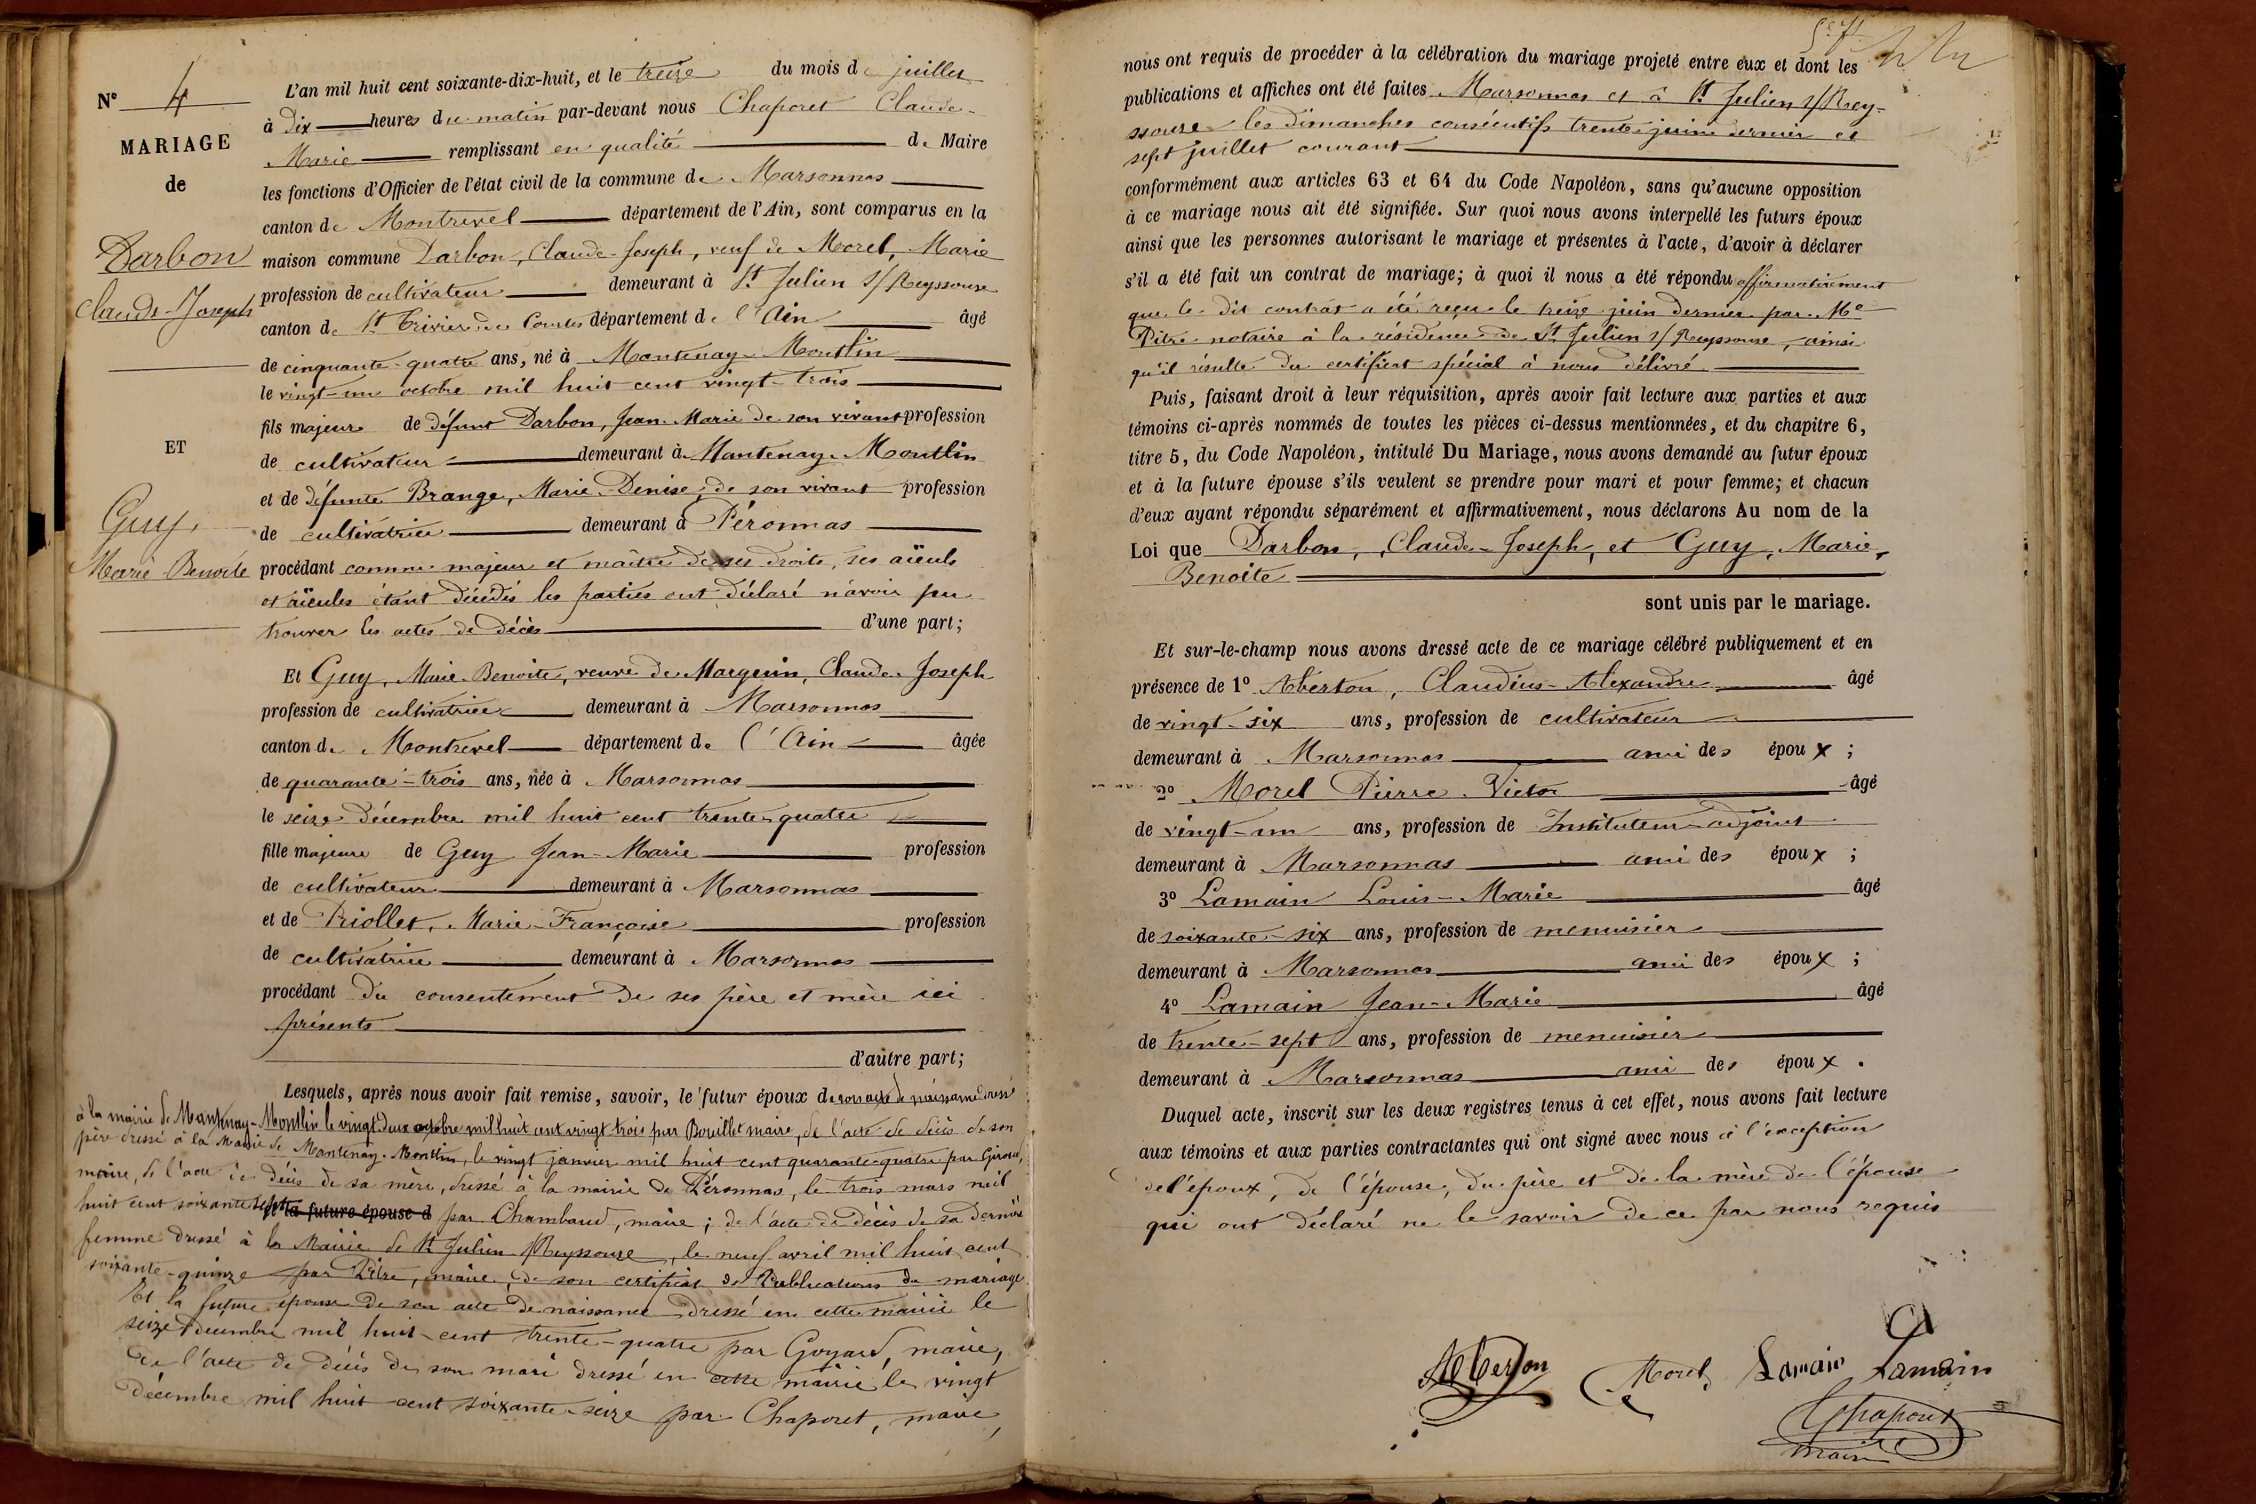 N° 4
MARIAGE
de
Darbon
Claude-Joseph
ET
Guy,
Marie Benoite
L'an mil huit cent soixante-dix-huit, et le treize du mois de juillet
à Dix heures du matin par-devant nous Chaporet Claude-
Marie remplissant en qualité de Maire
les fonctions d'Officier de l'état civil de la commune de Marsonnas
canton de Montrevel département de l'Ain, sont comparus en la
maison commune Darbon, Claude-Joseph, veuf de Morel, Marie
profession de cultivateur demeurant à St Julien s/Reyssouze
canton de St Trivier de Courtes département de l'Ain âgé
de cinquante-quatre ans, né à Mantenay-Montlin
le vingt-un octobre mil huit cent vingt-trois
fils majeur de défunt Darbon, Jean-Marie de son vivant profession
de cultivateur demeurant à Mantenay-Montlin
et de défunte Brange, Marie-Denise, de son vivant profession
de cultivatrice demeurant à Péronnas
procédant comme majeur et maître de ses droits, ses aïeuls
et aïeules étant décédés les parties ont déclaré n'avoir pu
trouver les actes de décès d'une part;
Et Guy, Marie-Benoite, veuve de Marguin, Claude-Joseph
profession de cultivatrice demeurant à Marsonnas
canton de Montrevel département de l'Ain âgée
de quarante-trois ans, née à Marsonnas
le seize décembre mil huit cent trente-quatre
fille majeure de Guy Jean-Marie profession
de cultivateur demeurant à Marsonnas
et de Priollet, Marie-Françoise profession
de cultivatrice demeurant à Marsonnas
procédant du consentement de ses père et mère ici
présents
d'autre part;
Lesquels, après nous avoir fait remise, savoir, le futur époux de son acte de naissance dressé
à la mairie de Mantenay-Montlin le vingt deux octobre mil huit cent vingt trois par Bouillet maire, de l'acte de décès de son
père dressé à la Mairie de Mantenay-Montlin, le vingt janvier mil huit cent quarante-quatre par Giroud,
maire, de l'acte de décès de sa mère, dressé à la mairie de Péronnas, le trois mars mil
huit cent soixante sept et la future épouse d par Chambaud, maire; de l'acte de décès de sa dernière
femme dressé à la Mairie de St Julien s/Reyssouze, le neuf avril mil huit cent
soixante-quinze par Pitre, maire; de son certificat de Publications de mariage.
Et la future épouse de son acte de naissance dressé en cette mairie le
seize décembre mil huit-cent trente-quatre par Goyard, maire,
de l'acte de décès de son mari dressé en cette mairie le vingt
décembre mil huit-cent soixante-seize par Chaporet, maire,
nous ont requis de procéder à la célébration du mariage projeté entre eux et dont les
publications et affiches ont été faites Marsonnas et à St Julien s/Rey-
ssouze les dimanches consécutifs trente juin dernier et
sept juillet courant
conformément aux articles 63 et 64 du Code Napoléon, sans qu'aucune opposition
à ce mariage nous ait été signifiée. Sur quoi nous avons interpellé les futurs époux
ainsi que les personnes autorisant le mariage et présentes à l'acte, d'avoir à déclarer
s'il a été fait un contrat de mariage; à quoi il nous a été répondu affirmativement
que le dit contrat a été reçu le treize juin dernier par Me
Pitre notaire à la résidence de St Julien s/Reyssouze, ainsi
qu'il résulte du certificat spécial à nous délivré.
Puis, faisant droit à leur réquisition, après avoir fait lecture aux parties et aux
témoins ci-après nommés de toutes les pièces ci-dessus mentionnées, et du chapitre 6,
titre 5, du Code Napoléon, intitulé Du Mariage, nous avons demandé au futur époux
et à la future épouse s'ils veulent se prendre pour mari et pour femme; et chacun
d'eux ayant répondu séparément et affirmativement, nous déclarons Au nom de la
Loi que Darbon, Claude-Joseph, et Guy, Marie-
Benoite
sont unis par le mariage.
Et sur-le-champ nous avons dressé acte de ce mariage célébré publiquement et en
présence de 1° Aberton, Claudius-Alexandre âgé
de vingt-six ans, profession de cultivateur
demeurant à Marsonnas ami des époux;
2° Morel Pierre-Victor âgé
de vingt-un ans, profession de Instituteur-adjoint
demeurant à Marsonnas ami des époux;
3° Lamain Louis-Marie âgé
de soixante-six ans, profession de menuisier
demeurant à Marsonnas ami des époux;
4° Lamain Jean-Marie âgé
de trente-sept ans, profession de menuisier
demeurant à Marsonnas ami des époux.
Duquel acte, inscrit sur les deux registres tenus à cet effet, nous avons fait lecture
aux témoins et aux parties contractantes qui ont signé avec nous à l'exception
de l'époux, de l'épouse, du père et de la mère de l'épouse
qui ont déclaré ne le savoir de ce par nous requis
Aberton Morel Lamain Lamain
Chaporet
maire